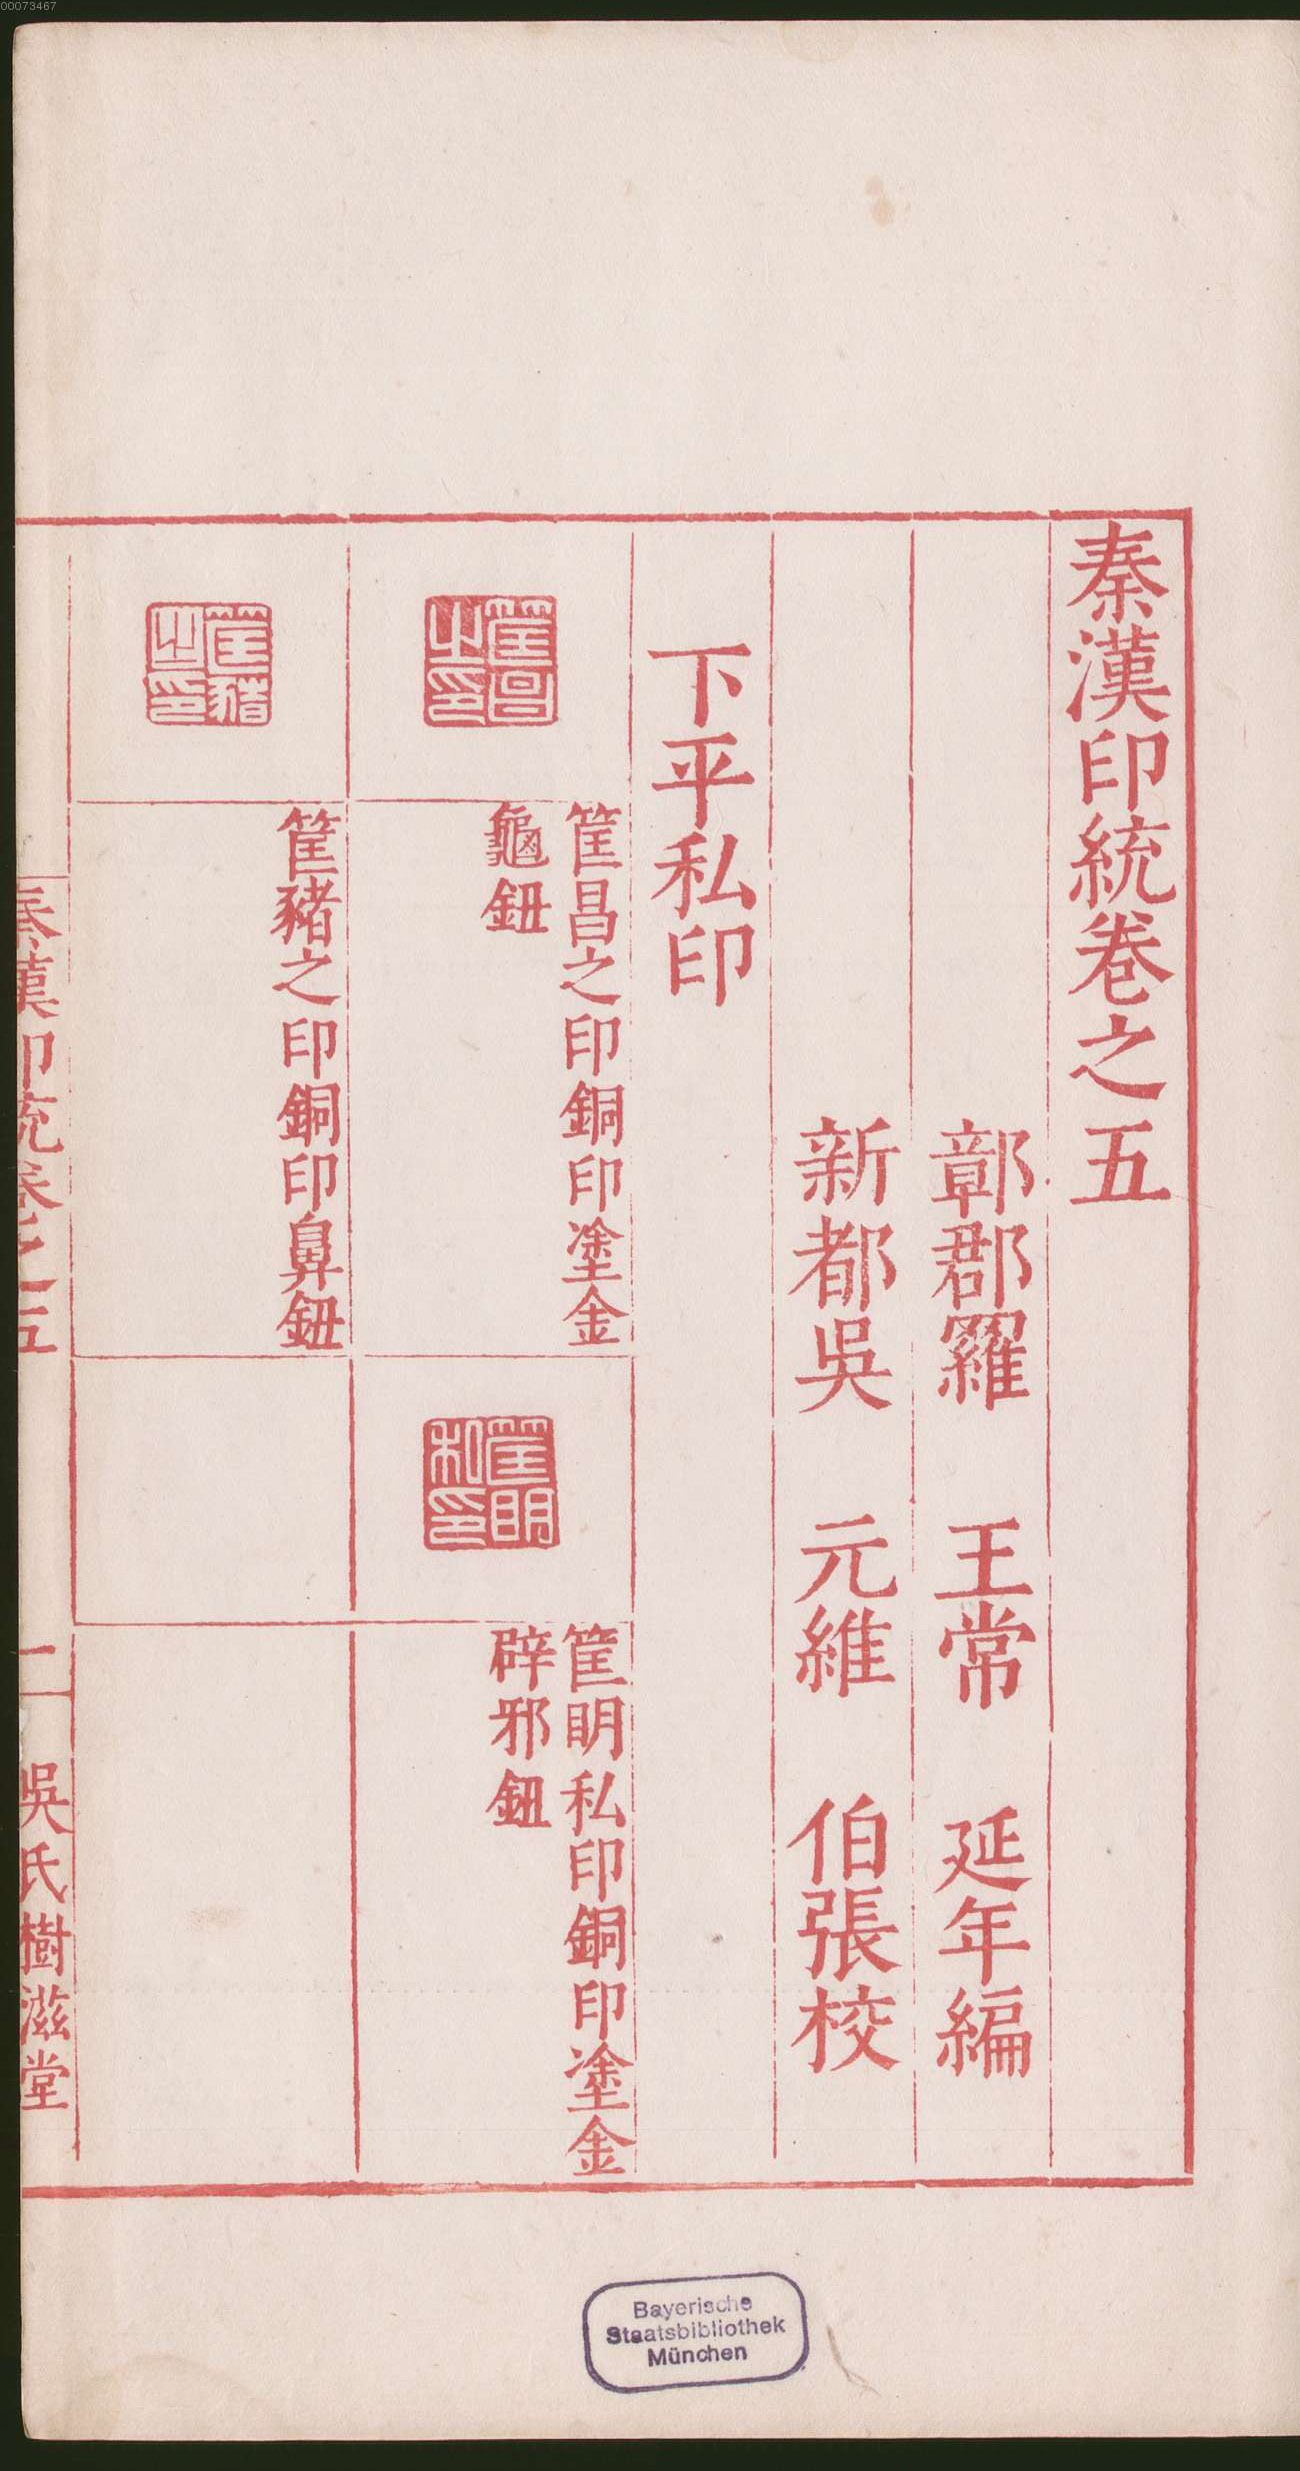 00073467
秦漢印統卷之五
鄣郡羅 王常 延年編
新都吳 元維 伯張校
下平私印
筐昌之印
筐昌之印銅印塗金
龜鈕
筐明私印
筐明私印銅印塗金
辟邪鈕
筐豬之印
筐豬之印銅印鼻鈕
秦漢印統卷之五
一
吳氏樹滋堂
Bayerische
Staatsbibliothek
München